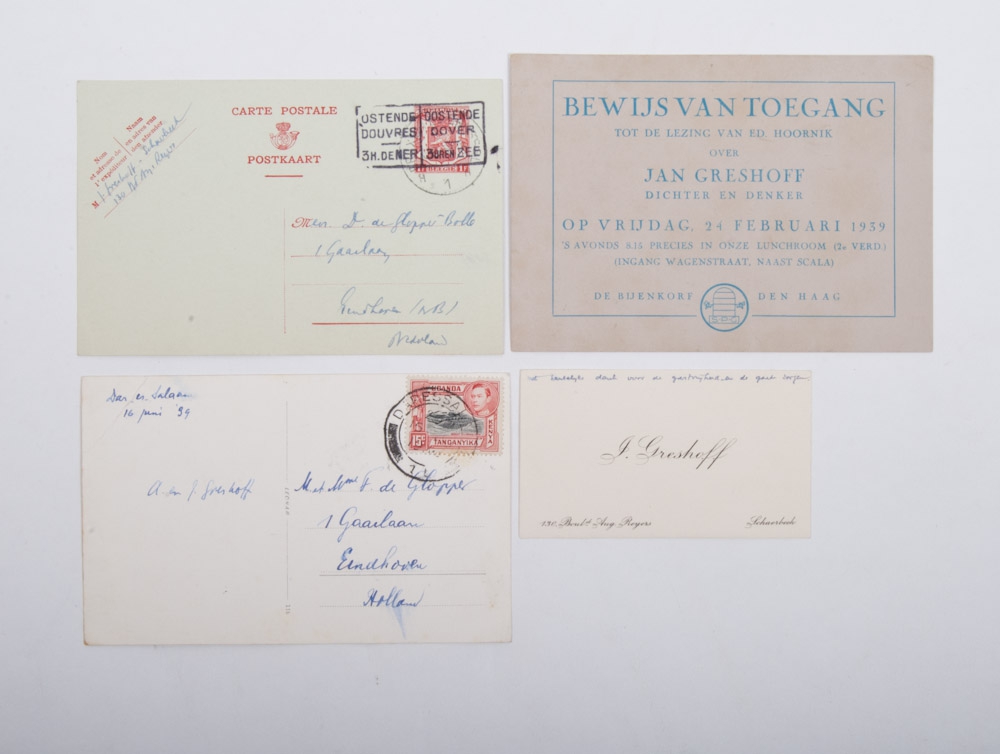 CARTE POSTALE
POSTKAART
Nom
et adresse de
l'expéditeur
M
Naam
en adres van
den afzender
J Greshoff - Schaerbeek
130 Bd Aug. Reyers
OSTENDE OOSTENDE
DOUVRES DOVER
3H. DE MER 3UREN ZEE
1
Mevr. D. de Glopper-Bolle
1 Gaarlaan
Eindhoven (NB)
Nederland
BEWIJS VAN TOEGANG
TOT DE LEZING VAN ED. HOORNIK
OVER
JAN GRESHOFF
DICHTER EN DENKER
OP VRIJDAG, 24 FEBRUARI 1939
'S AVONDS 8.15 PRECIES IN ONZE LUNCHROOM (2e VERD.)
(INGANG WAGENSTRAAT, NAAST SCALA)
DE BIJENKORF DEN HAAG
Dar es Salaam
14 juni 39
A en J. Greshoff
UGANDA
KENYA
TANGANYIKA
15c
M et Mme F. de Glopper
1 Gaarlaan
Eindhoven
Holland
met hartelijke dank voor de gastvrijheid en de goede zorgen
J. Greshoff
130 Boulᵈ Aug. Reyers Schaerbeek